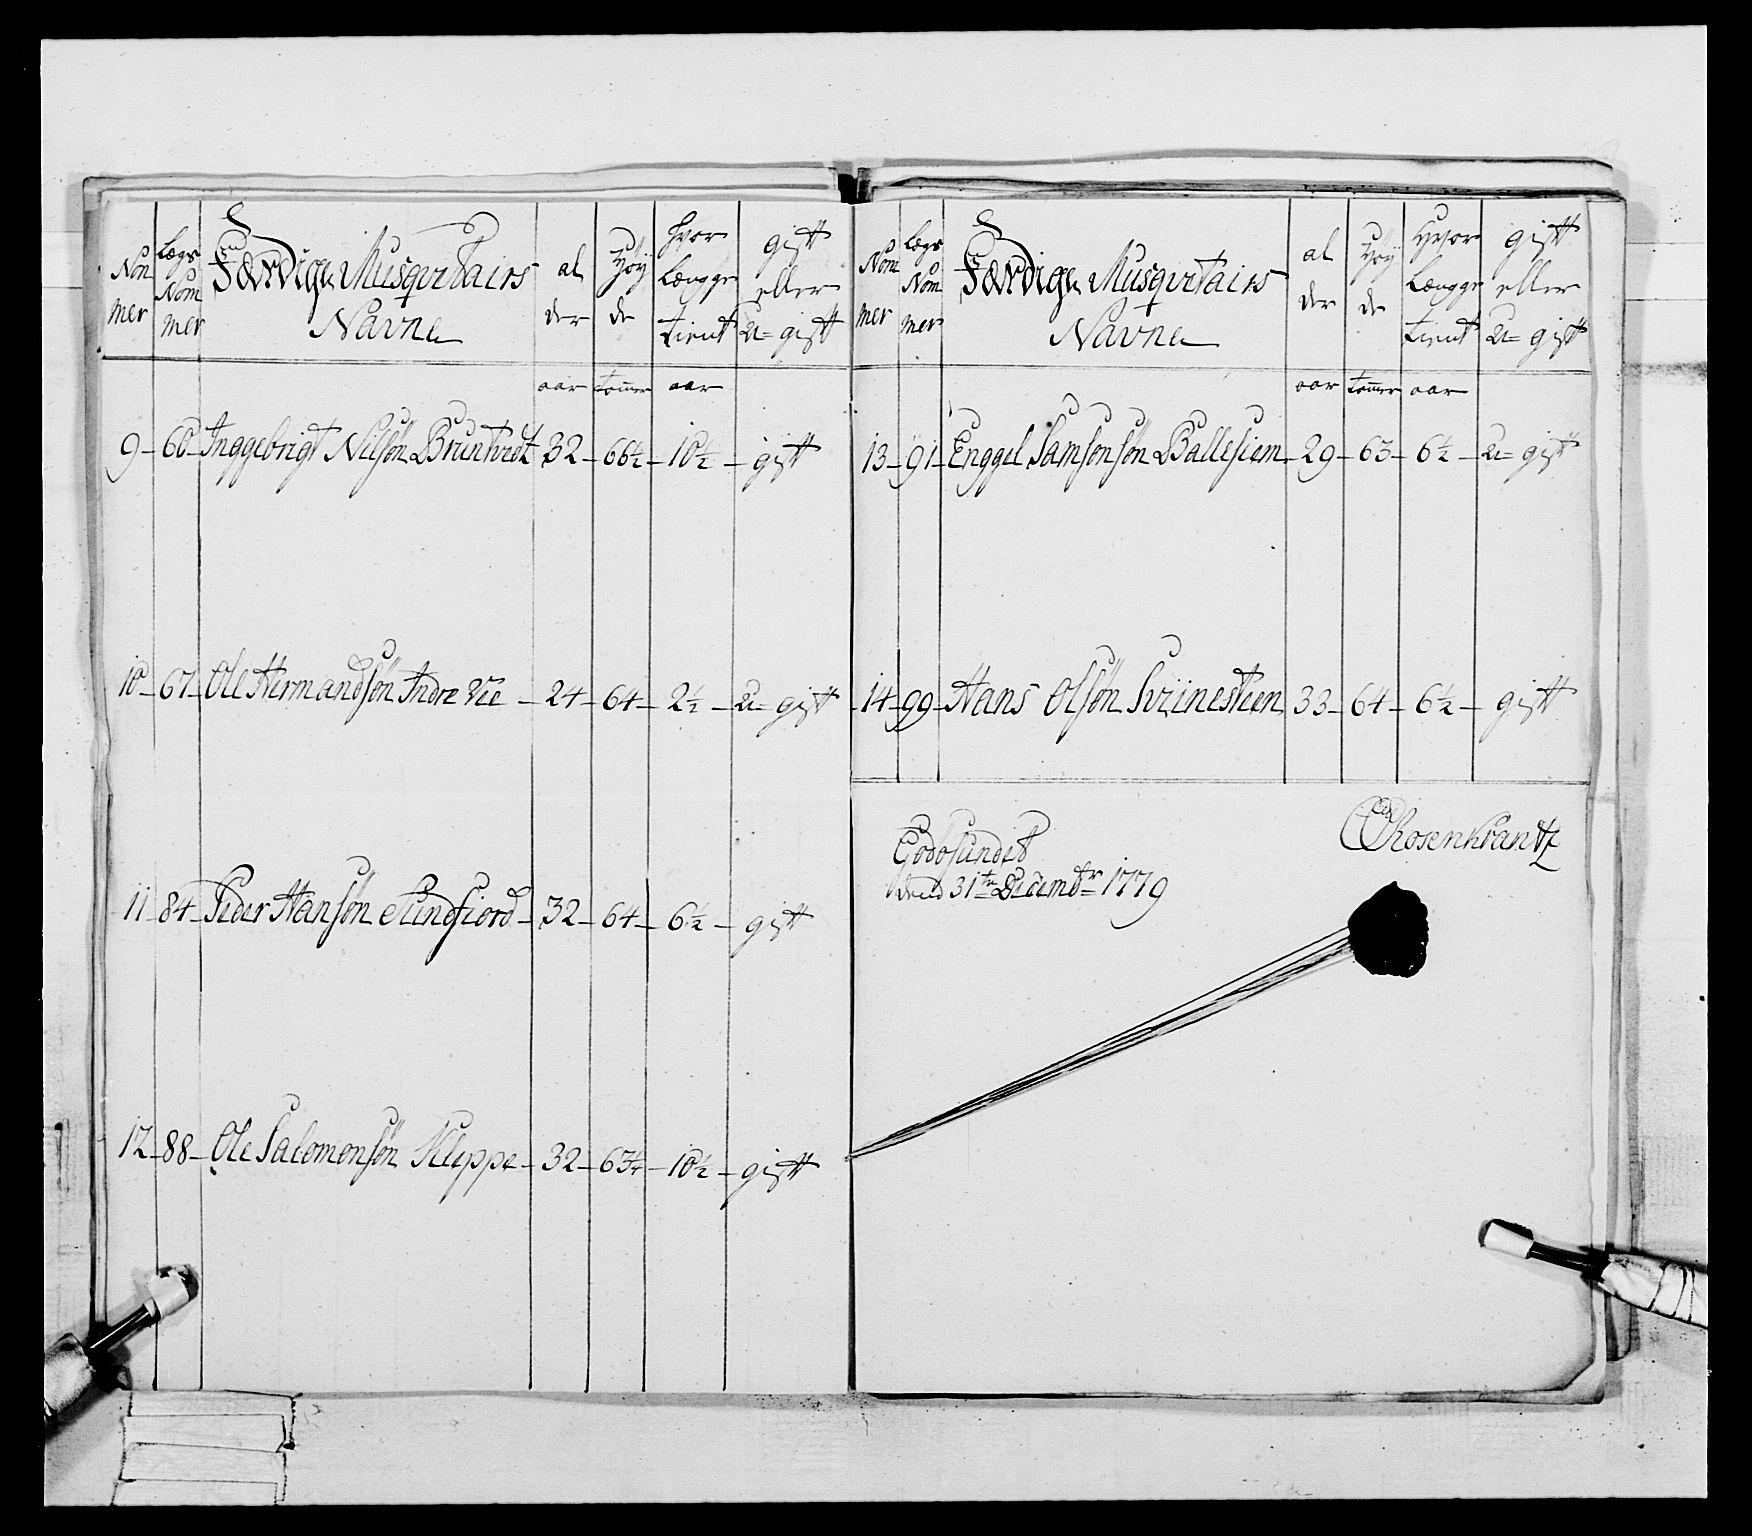 Nom
mer
Lægs
Nom
mer
Færdige Musqvetairs
Navne
al
der
Høy
de
hvor
længge
tient
gift
eller
u= gift
aar tom̄er aar
9 – 60 – Inggebrigt Nilsøn Bruntvedt 32 – 66½ – 10½ – gift
10 – 67 – Ole Hermandsøn Indre Vie – 24 – 64 – 2½ – u= gift
11 – 84 – Peder Hansøn Sundfiord – 32 – 64 – 6½ – gift
12 – 88 – Ole Salomonsøn Kleppe – 32 – 63¼ – 10½ – gift
Nom
mer
Lægs
Nom
mer
Færdige Musqvetairs
Navne
al
der
Høy
de
Hvor
længge
tient
gift
eller
u= gift
aar tom̄er aar
13 – 91 – Enggel Samsonsøn Ballesiem – 29 – 63 – 6½ – u= gift
14 – 99 – Hans Olsøn Sviinestien 33 – 64 – 6½ – gift
Rosenkrantz
Godøsundet
dend 31te Decembr 1779